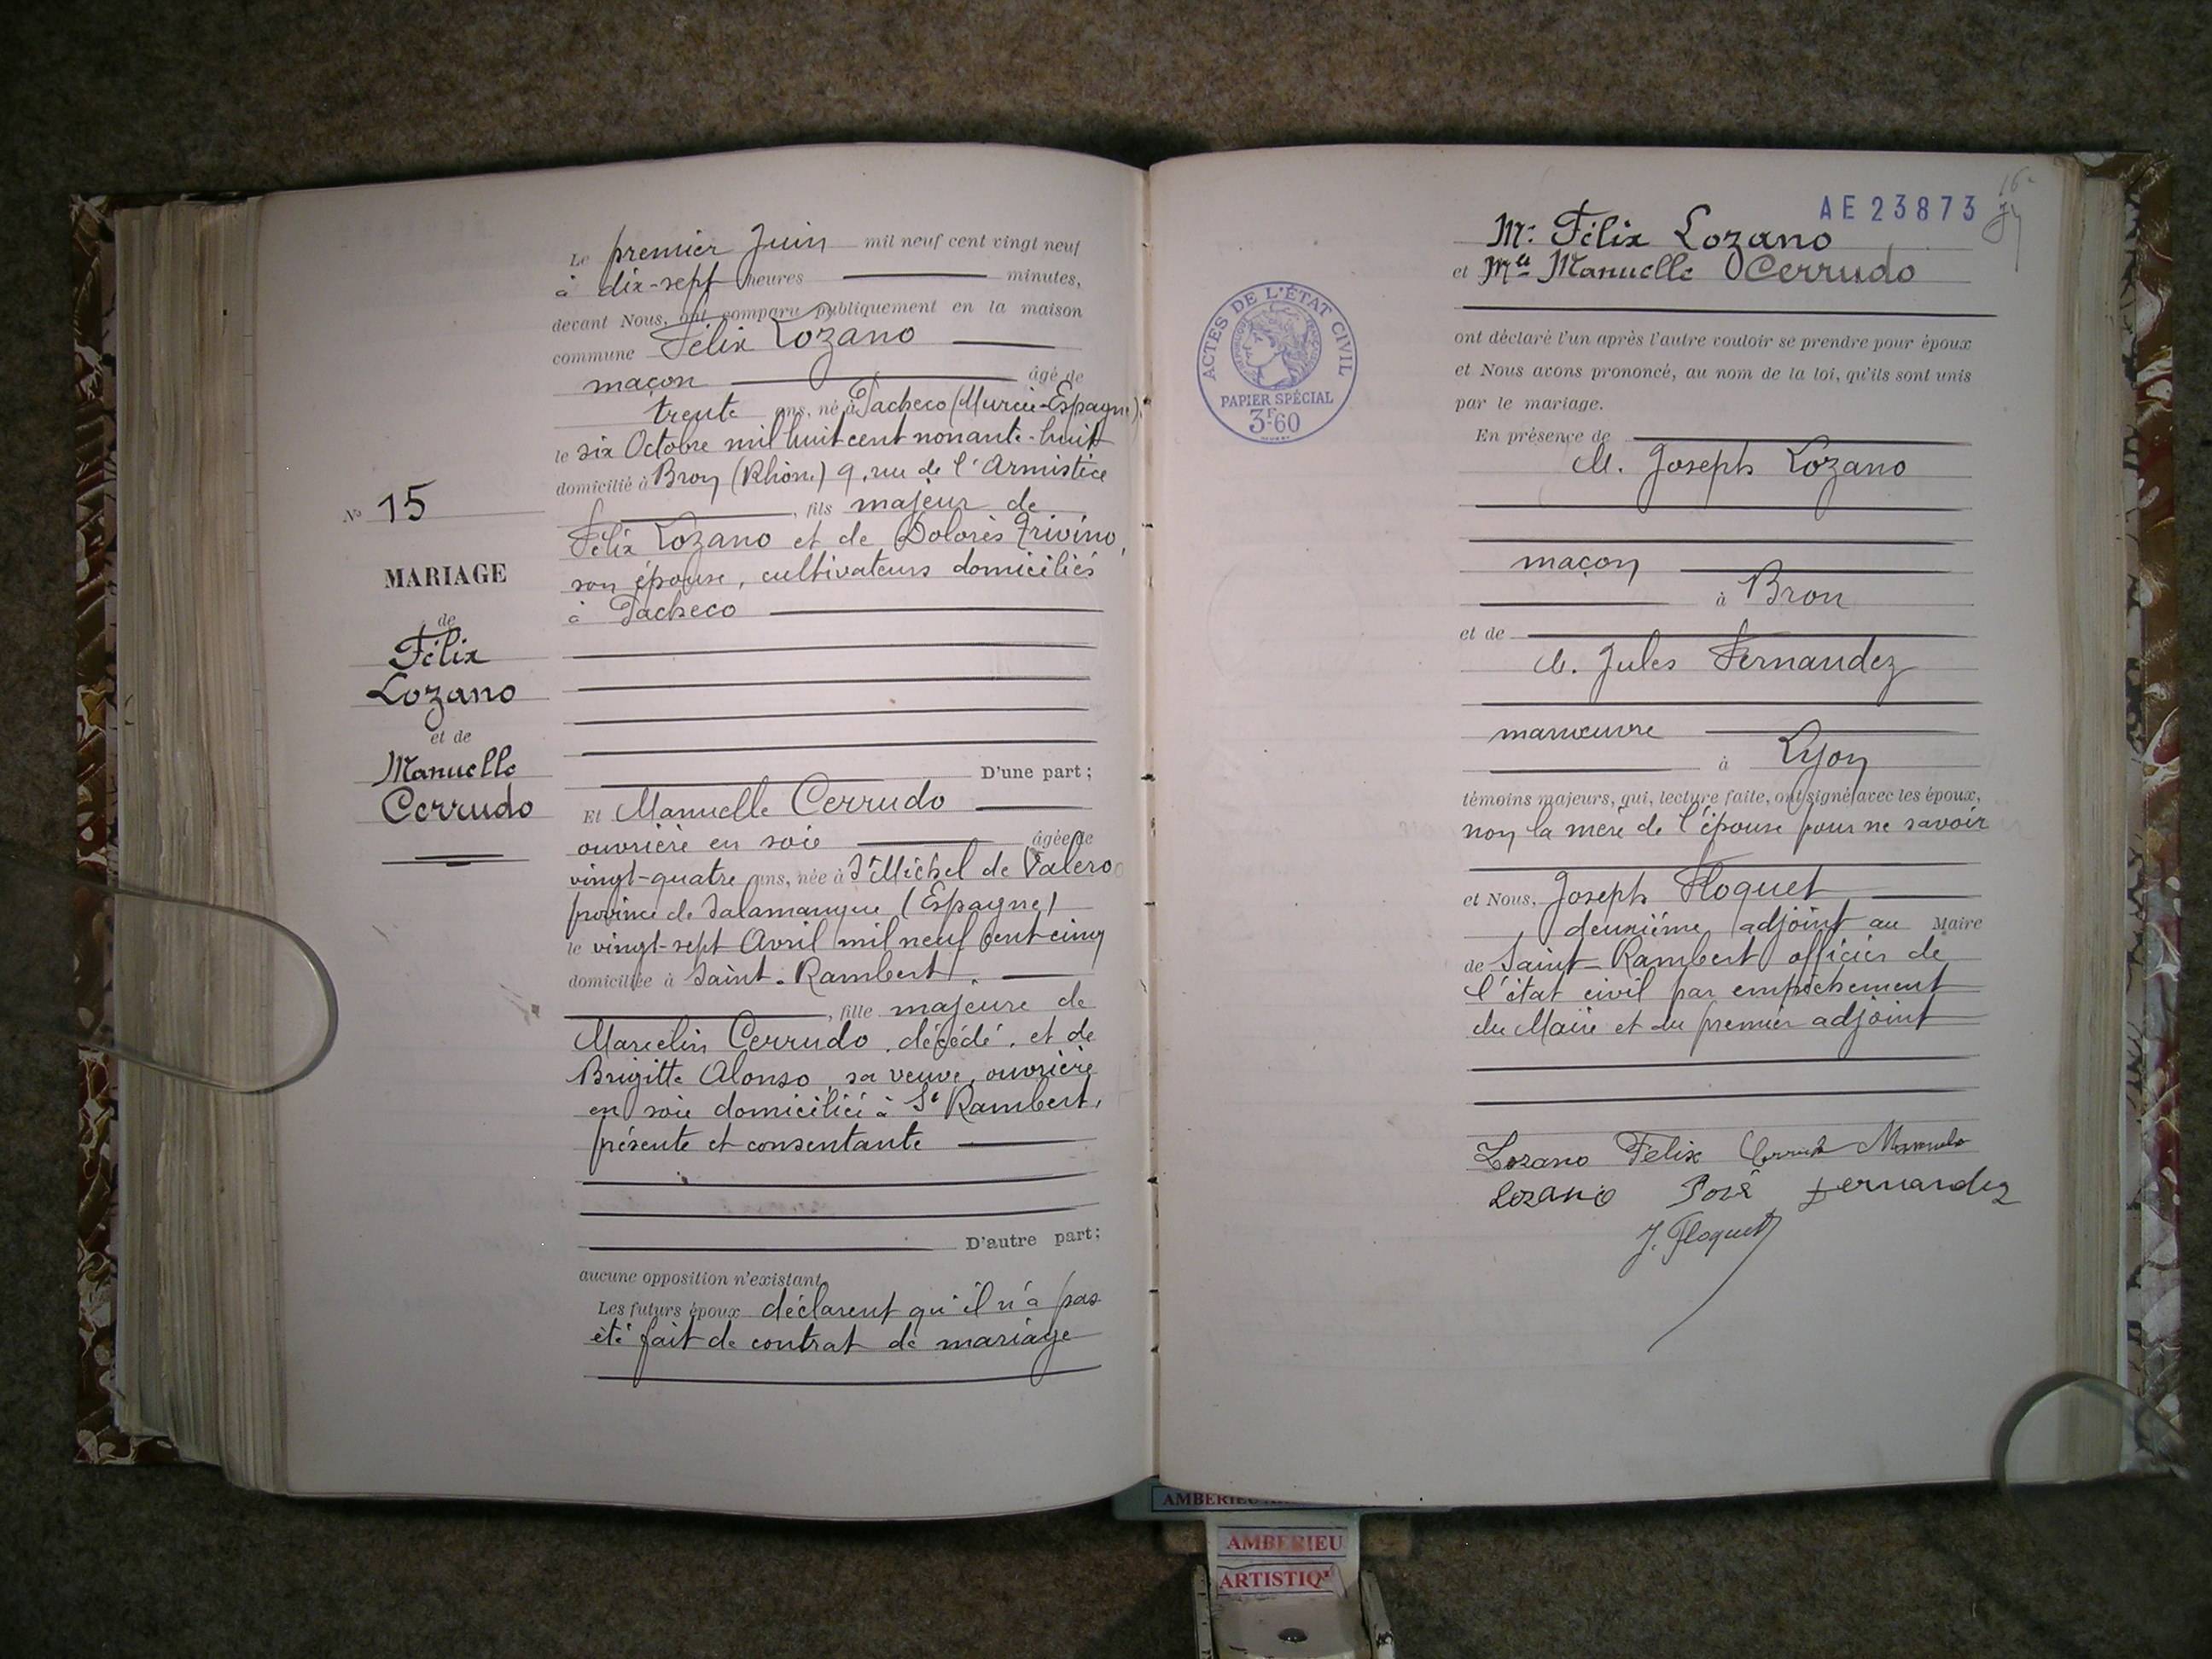 Le premier Juin mil neuf cent vingt neuf
à dix-sept heures minutes,
devant Nous, ont comparu publiquement en la maison
commune Félix Lozano
maçon âgé de
trente ans, né à Pacheco (Murcie-Espagne),
le six Octobre mil huit cent nonante-huit
domicilié à Bron (Rhône) 9, rue de l'Armistice
, fils majeur de
Félix Lozano et de Dolorès Trivino,
son épouse, cultivateurs domiciliés
à Pacheco
D'une part;
N° 15
MARIAGE
de
Félix
Lozano
et de
Manuelle
Cerrudo
Et Manuelle Cerrudo
ouvrière en soie âgée de
vingt-quatre ans, née à St Michel de Valero
province de Salamanque (Espagne)
le vingt-sept Avril mil neuf cent cinq
domiciliée à Saint-Rambert
, fille majeure de
Marcelin Cerrudo, décédé, et de
Brigitte Alonso, sa veuve, ouvrière
en soie domiciliée à St Rambert,
présente et consentante
D'autre part;
aucune opposition n'existant,
Les futurs époux déclarent qu'il n'a pas
été fait de contrat de mariage
AE 23873
Mr Félix Lozano
et Mlle Manuelle Cerrudo
ACTES DE L'ÉTAT CIVIL
RÉPUBLIQUE FRANÇAISE
PAPIER SPÉCIAL
3F60
ont déclaré l'un après l'autre vouloir se prendre pour époux
et Nous avons prononcé, au nom de la loi, qu'ils sont unis
par le mariage.
En présence de
M. Joseph Lozano
maçon
à Bron
et de
M. Jules Fernandez
manœuvre
à Lyon
témoins majeurs, qui, lecture faite, ont signé avec les époux,
non la mère de l'épouse pour ne savoir
et Nous, Joseph Floquet
deuxième adjoint au Maire
de Saint-Rambert officier de
l'état civil par empêchement
du Maire et du premier adjoint
Lozano Felix Cerrudo Manuela
Lozano José Fernandez
J. Floquet
AMBERIEU
AMBERIEU
ARTISTIQ